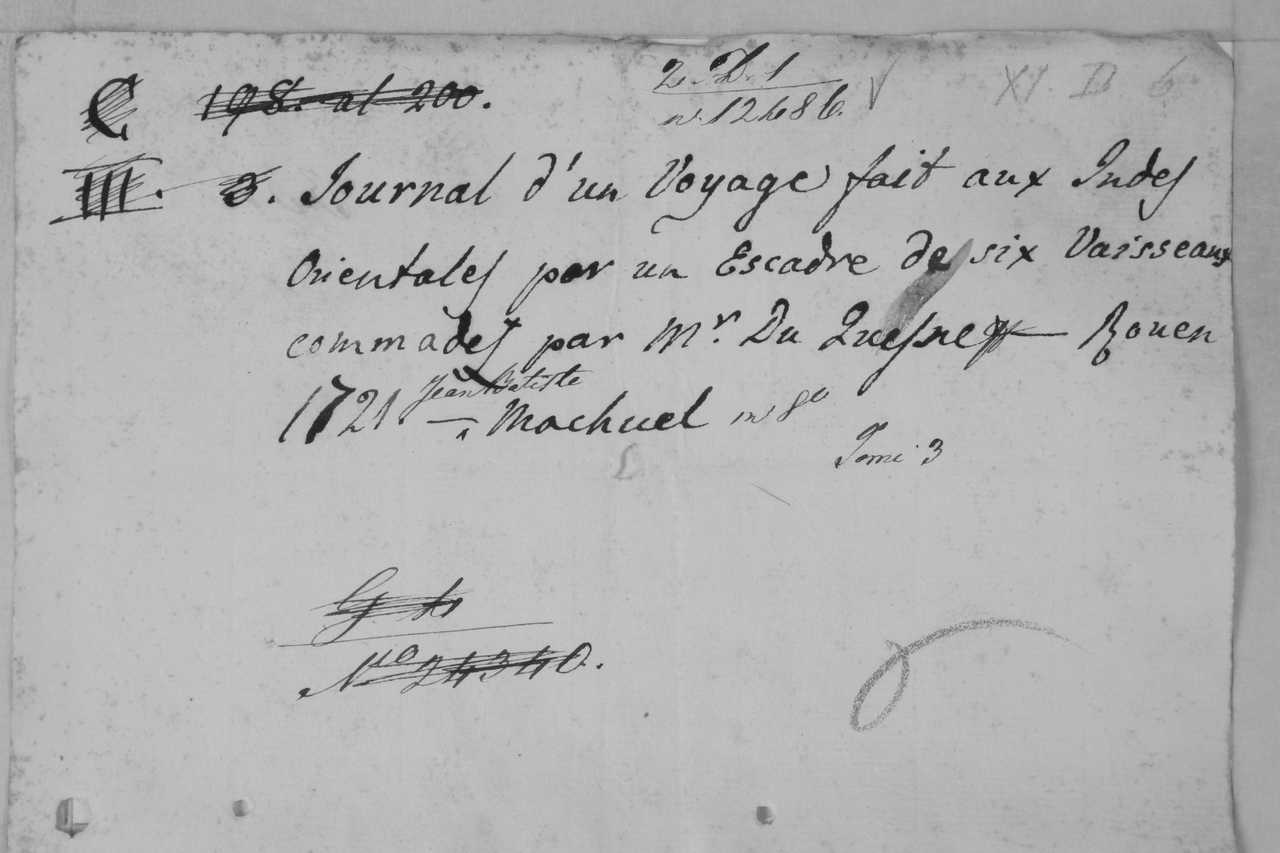 C 198. al 200.
2. D. 1
n. 12486.
XI. D 6
III. 3. Journal d'un Voyage fait aux Indes
Orientales par un Escadre de six Vaisseaux
commādes par Mr. Du Quesne Rouen
Jean Batiste
1721 — Machuel in 8o
Tome 3
No 24340.